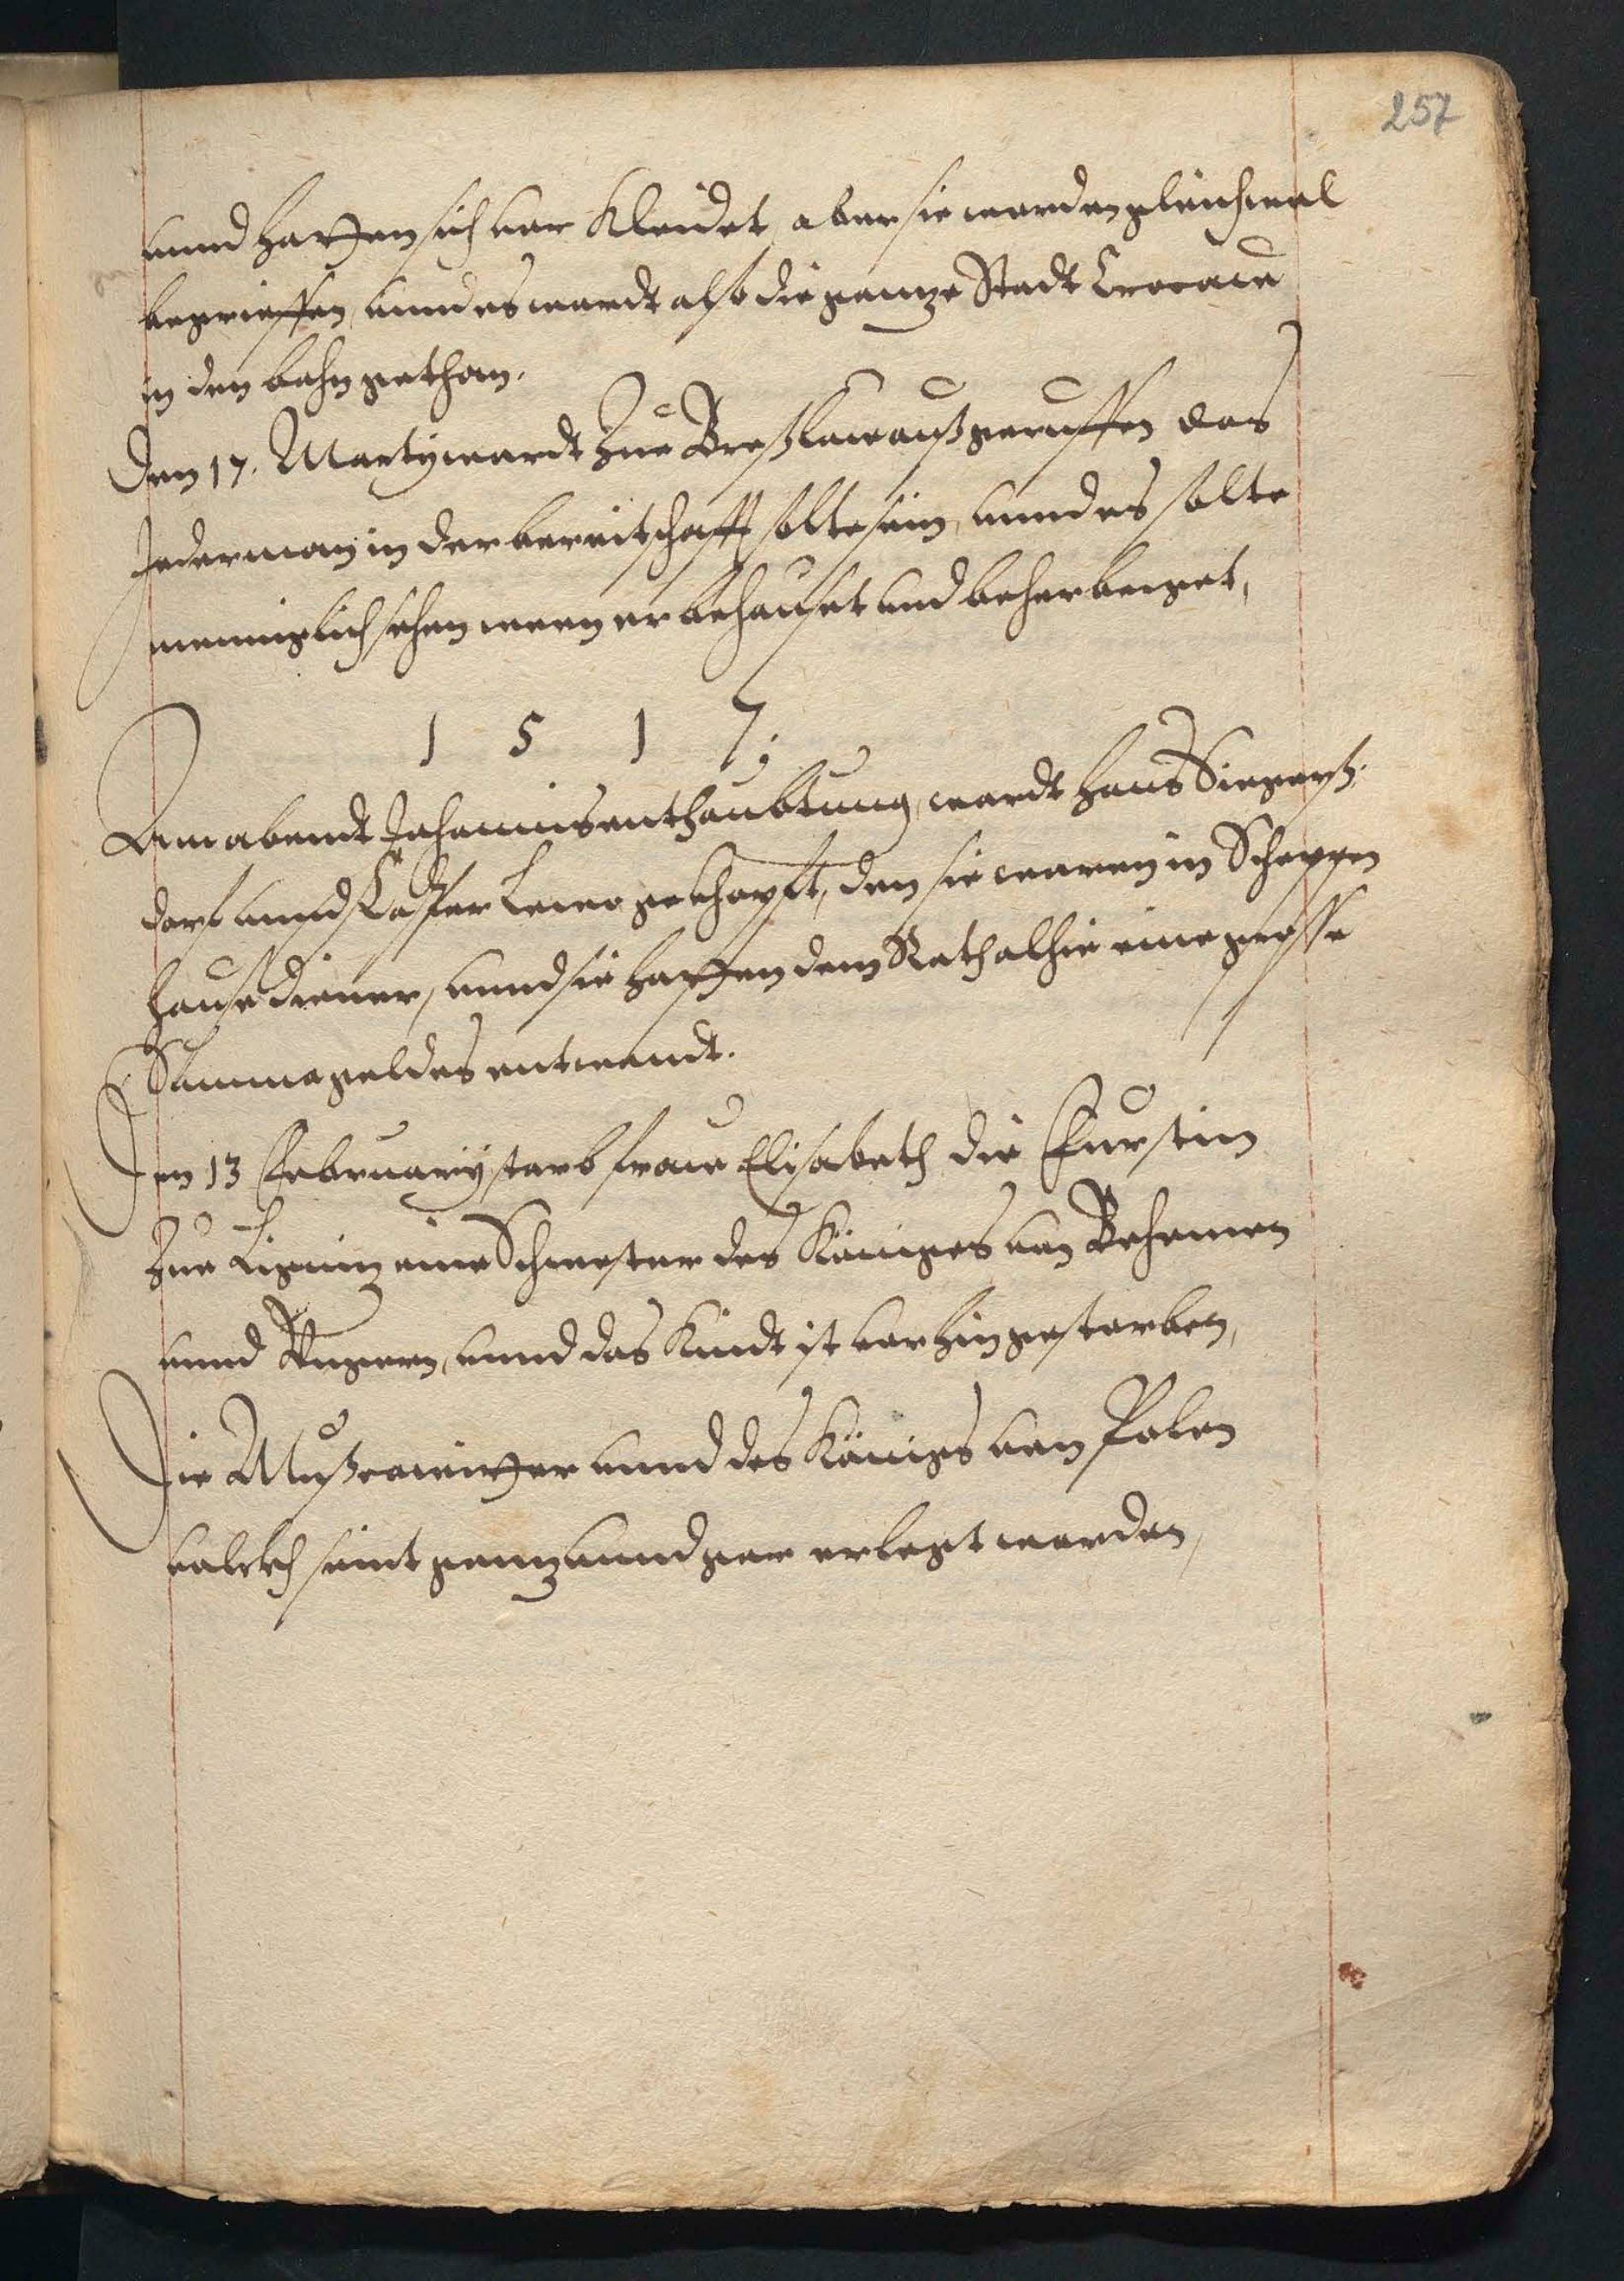 257
unnd hatten sich vor Kleidet, aber sie worden gleichwol
begrieffen, unnd es wardt also die gantze Stadt Crocaw
in den bahn gethan.
Den 17. Marty wardt zue Breßlaw außgeruffen das
Jederman in der bereitschafft solte sein, unnd es solte
menniglich sehen wenn er behauset und beherberget,
1 5 1 7.
Am abendt Johannis enthaubtung, wardt Hans Siegerß-
dorf unnd Casper gekhopft, den sie waren in Schoppen
hause diener, unnd sie hatten dem Rath alhie eine grosse
Summa geldes entwandt.
Den 13 February starb fraw Elisabeth die Furstin
zue Lignitz eine Schwester des Königes von Behemen
unnd Ungern, unnd das Kindt ist vorhin gestorben,
Die Mußcawitter unnd des Königs von Polen
volckh seint gantz unnd gar erlegt worden,